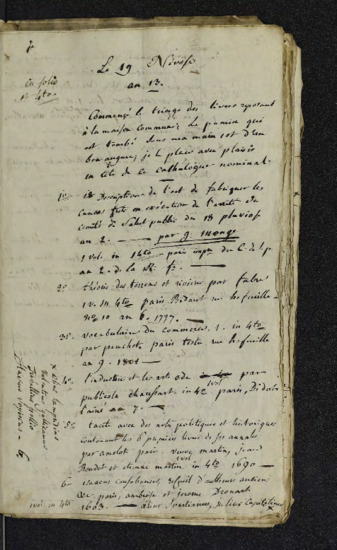 in folio
et 4to.
Le 19 Nivôse
an 13.
Commencé le triage des livres reposant
à la maison commune; le premier qui
est tombé sous ma main est d'un
bon augure; je le place avec plaisir
en tête de ce catalogue nominal.
1o. Description de l'art de fabriquer les
canons faite en exécution de l'arrêté du
comité de Salut public du 18 pluviose
an 2. — par g. monge
1 vol. in 4to — paris impr. du C. de S. p
an 2. de la R. f.
2o. théorie des torrens et rivieres par fabre
1 v. in 4to paris Bidault rue hautefeuille
no 10 an 6. 1797.
3o. vocabulaire du commerce. 1. in 4to
par peuchet paris testu rue hautefeuille
an 9. — 1801 —
4o. l'industrie et les arts ode par
publicola chaussart in 4o paris, Didot
l'ainé an 7. —
5o. tacite avec des notes politiques et historiques
contenant les 6 premiers livres de ses annales
par amelot paris veuve martin, jean
Boudot et étienne martin in 4to 1690 —
6o isaacus casaubonus,
&c. paris, ambroise et jerome Drouart
1603. — Capitolinus